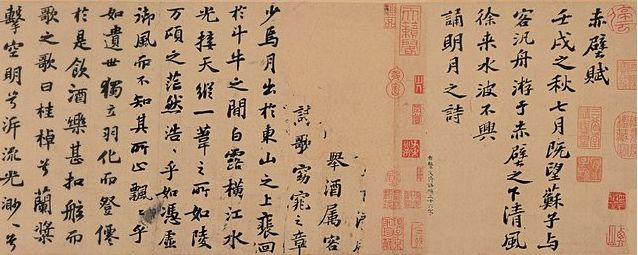 赤壁賦
壬戌之秋七月既望蘇子与
客汎舟游于赤壁之下清風
徐来水波不興
誦明月之詩
舉酒属客
歌窈窕之章
少焉月出於東山之上裵回
於斗牛之間白露橫江水
光接天縱一葦之所如陵
万頃之茫然浩〻乎如憑虚
御風而不知其所止飄〻乎
如遺世獨立羽化而登僊
於是飲酒樂甚扣舷而
歌之歌曰桂棹兮蘭槳
擊空明兮泝流光渺〻兮